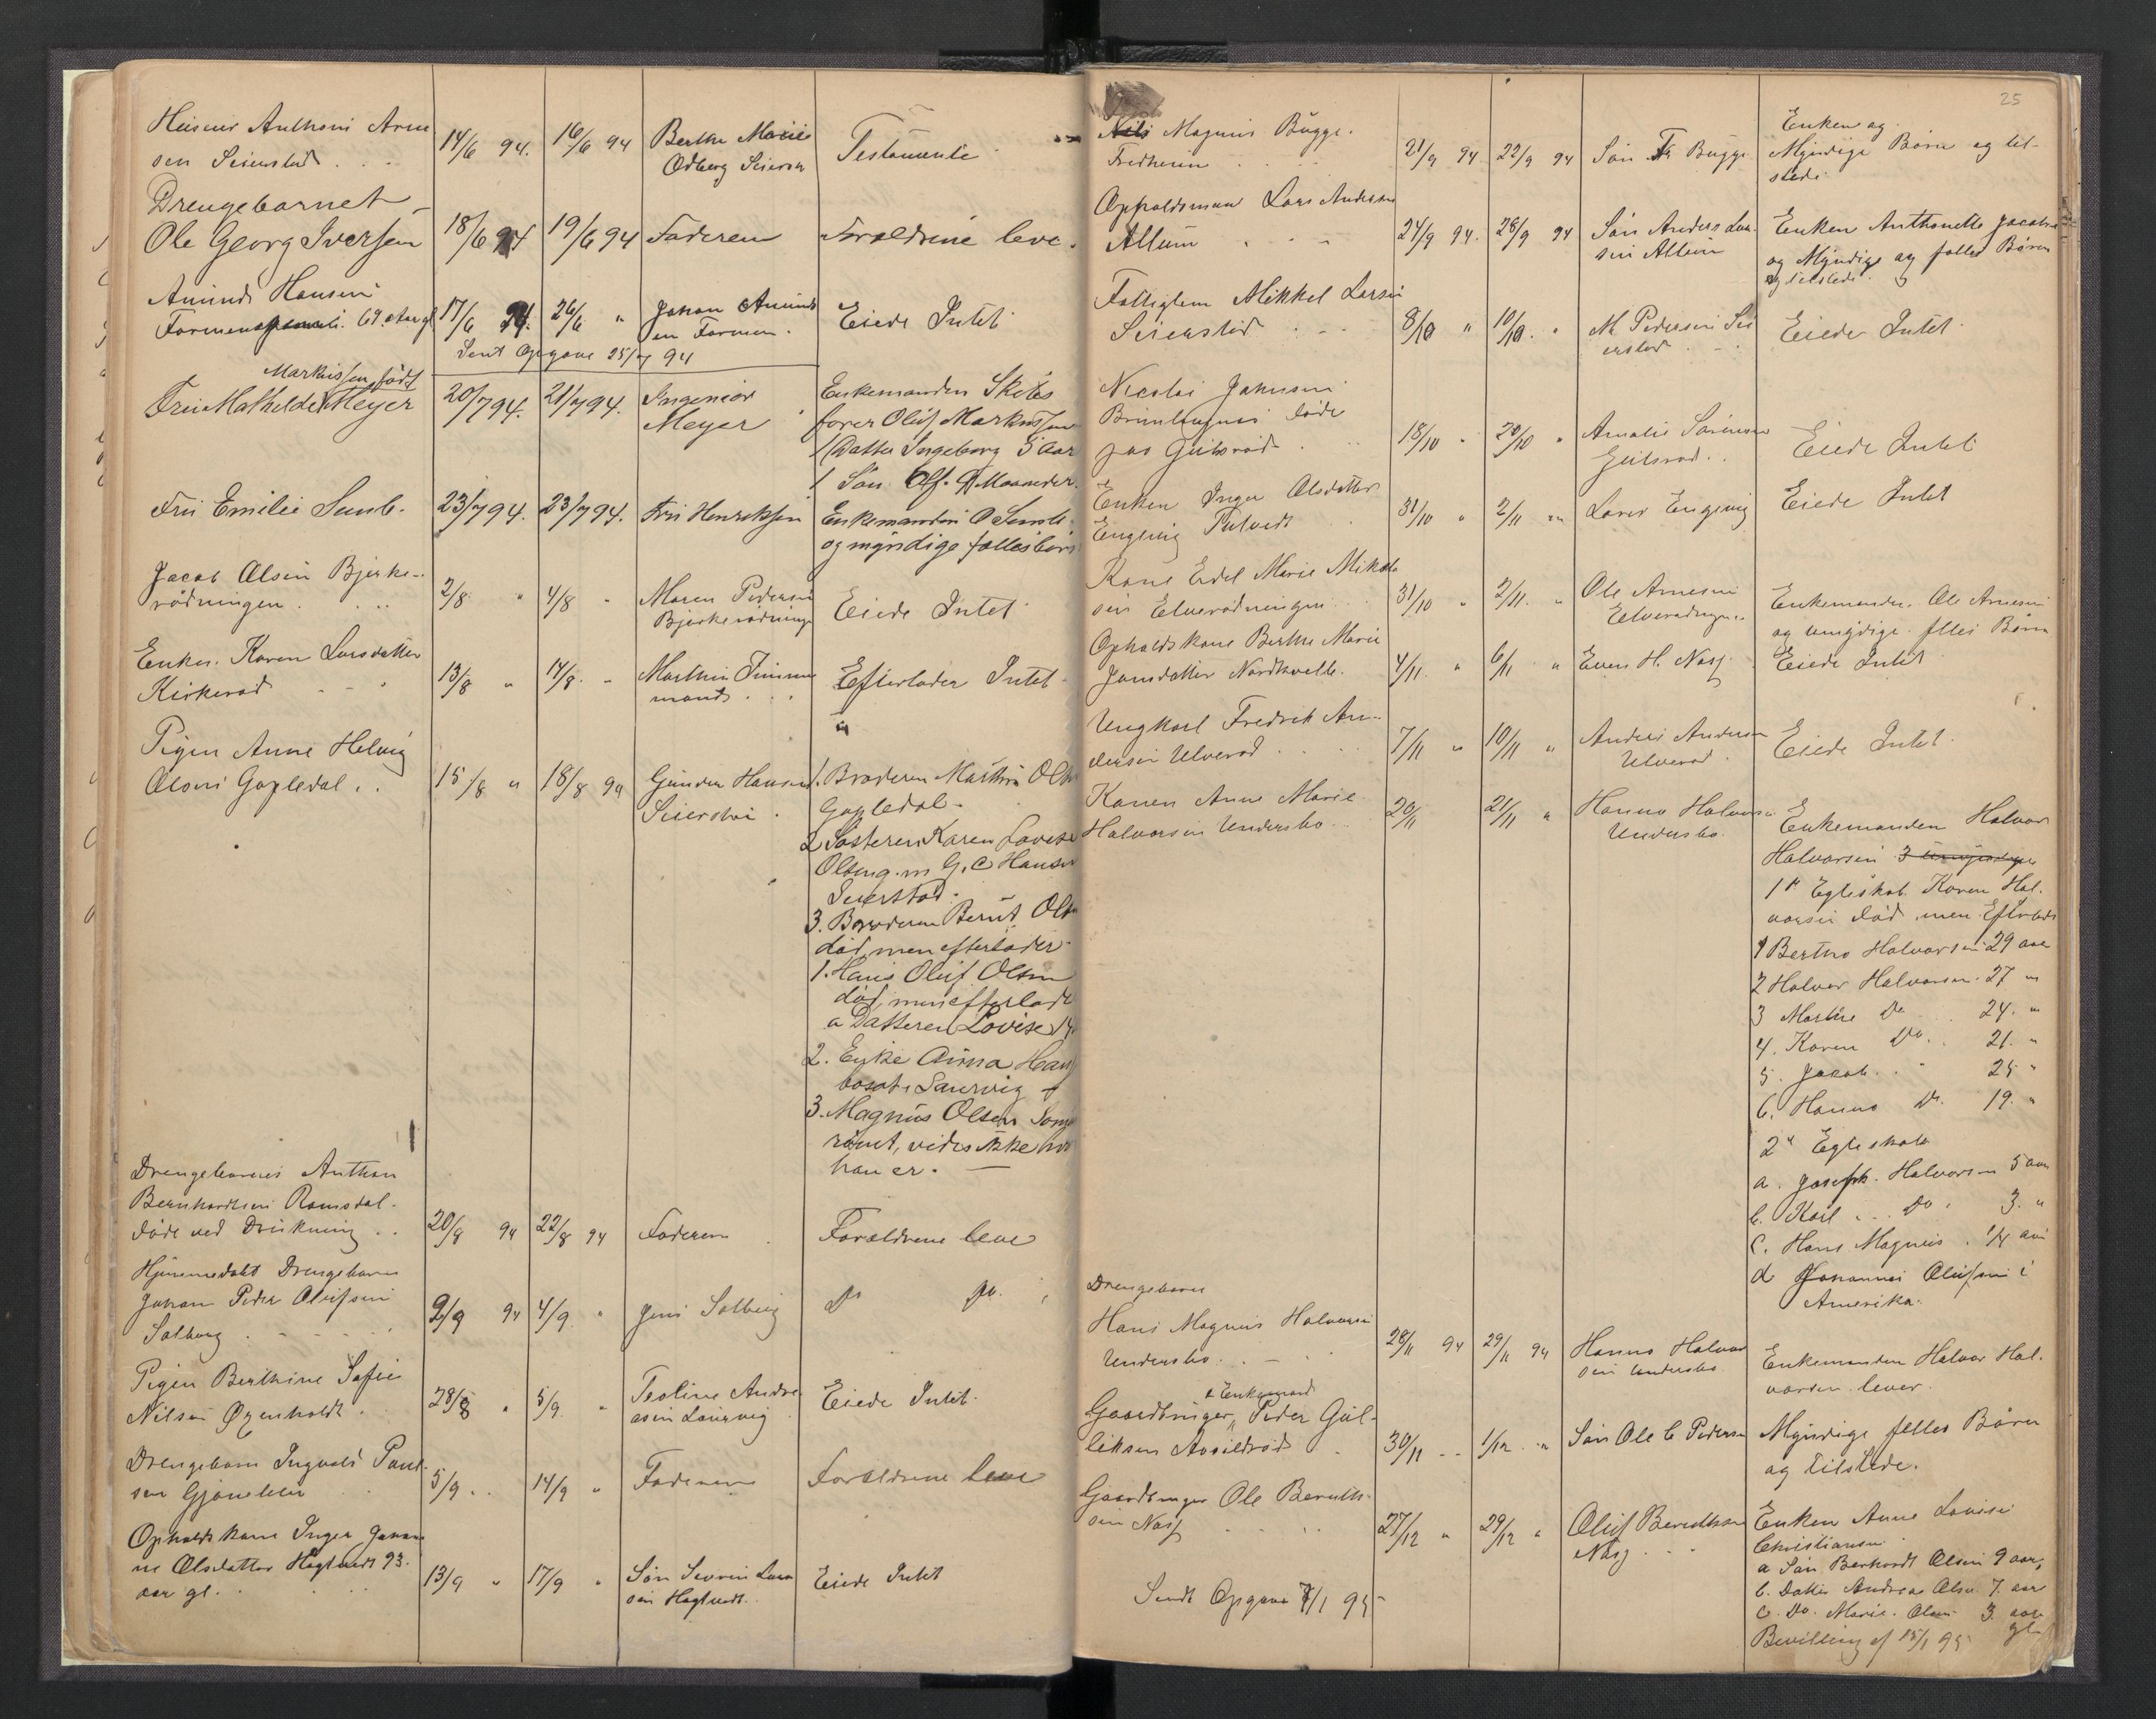 Anthoni Arne
sen Seierstad . . .
14/6 94.
16/6 94
Berthe Marie
Odberg Seiersta
Testamente
Drengebarnet
Ole Georg Iversen
18/6 94
19/6 94
Faderen
Foræeldrene leve.
Amund Hansen
Formen 69 Aar gl
17/6 94.
26/6 "
Johan Amund
sen Formen.
Eiede Intet
Sent Opgave 25/7 94
Markussen født
Fru Mathilde Meyer
20/7 94.
21/7 94.
Ingeniør
Meyer
Enkemanden Skibs
fører Oluf Markussen
1 Datter Ingeborg 5 Aar
1 Søn Olf. 9 Maaneder.
Fru Emilie Sunb.
23/7 94.
23/7 94.
Fru Henriksen
Enkemanden O Sunb.
og myndige fællesbørn
Jacob Olsen Bjerke-
rødningen . . .
2/8 "
4/8 "
Maren Pedersen
Bjerkerødninge
Eiede Intet
Enken. Karen Larsdatter
Kirkerød - - -
13/8 "
14/8. "
Marthin Timmer
mands . . .
Efterlader Intet
Pigen Anne Helvig
Olsen Gopledal . .
15/8 "
18/8 94
Gunder Hansen
Seierstad .
1. Broderen Marthin Olsen
Gopledal -
2 Søsteren Karen Lovise
Olsen g. m G. C Hansen
Seierstad.
3. Broderen Bernt Olsen
død, men efterlader
1. Hans Oluf Olsen
død, men efterlod
a Datteren Lovise 14
2. Enke Anna Han
bosat i Laurvig
3. Magnus Olsen Søm
rømt, vides ikke hvor
han er. —
Drengebarnet Anthon
Bernhardsen Ramsdal.
døde ved Drukning . .
20/8 94
22/8 94
Faderen
Forældrene leve
Hjemmedøbt Drengebarn
Johan Peder Olufsen
Solberg . - - -
2/9 94
4/9. "
Jens Solberg
Do Do.
Pigen Berthine Sofie
Nilsen Øxenholdt .
28/8 "
5/9. "
Teoline Andre
asen Laurvig
Eiede Intet.
Drengebarn Ingvald Paul
sen Gjønebku
5/9 . .
14/9 "
Faderen
Forældrene leve
Opholdskone Inger Johan
ne Olsdatter Hagtvedt 93.
aar gl. . . .
13/9 "
17/9 "
Søn Severin Lar
sen Hagtvedt.
Eiede Intet
25
Nils Magnus Bugge.
Fredheim . . .
21/9 94
22/9 94
Søn Fr Bugge
Enken og
Myndige Børn og til-
stede
Oppholdsmand Lars Andersen
Allum . - -
24/9 94.
28/9 94
Søn Anders Lar
sen Allum
Enken Anthonette Jacobse
og Myndige og fælles Børn
og tilstede.
Fattiglem Mikkel Larsen
Seierstad . - -
8/10 "
10/10. "
M. Pedersen Sei
erstad . -
Eiede Intet.
Nicolai Johnsen
døde
paa Guibsrød .
18/10 "
20/10 "
Amalie Sørensen
Guibsrød . .
Eiede Intet
Enken Inger Olsdatter
Engenig
31/10 "
2/11 "
Lars Engenig
Eiede Intet
Kone Edel Marie Mikkel
sen Elverødningen
31/10 "
2/11. "
Ole Arnesen
Elverødningen
Enkemanden. Ole Arnesen
og umyndige fælles Børn
Opholdskone Berthe Marie
Jonsdatter Nordkvelle.
4/11. "
6/11 "
Even H. Næss
Eiede Intet
Ungkarl Fredrik An-
dersen Ulverød . . .
7/11 "
10/11 "
Anders Andersen
Ulverød .
Eiede Intet.
Konen Anne Marie
Halvorsen Undersbo . .
20/11
21/11 "
Hanna Halvorsen
Undersbo.
Enkemanden Halvor
Halvorsen 3 umyndige
1st Egteskab. Karen Hal.
vorsen død, men Efterlod
1 Bertha Halvorsen 29 aar
2 Halvor Halvorsen. 27 "
3 Marthe Do . . 24. "
4. Karen Do. . 21. "
5. Jacob . . " 25 "
6. Hanna Do. 19. "
2d Egteskab
a. Joseph. Halvorsen 5 aar
b. Karl . . . Do . 3. "
c. Hans Magnus . 1/4 aar
d Johannes Olufsen i
Amerika.
Drengebarn
Hans Magnus Halvorsen
Undersbo. . - .
28/11 94
29/11 94
Hanna Halvor
sen Undersbo
Enkemanden Halvor Hal.
vorsen lever.
& Enkemand
Gaardbruger, Peder Gul-
liksen Aasildrød .
30/11 - -
1/12 . "
Søn Ole C Pedersen
Myndige fælles Børn
og tilstede.
Gaardbruger Ole Bernth-
sen Næss . . . .
27/12 "
29/12 "
Oluf Berntsen
Næss . . .
Enken Anne Lovise
Christiansen
a Søn Bernhardt Olsen 9 aar,
b. Datter Andrea Olsen 7. aar
c. Do. Marie. Olsen 3. aar
gl.
Bevilling af 15/1 95
Sendt Opgave 7/1 95-